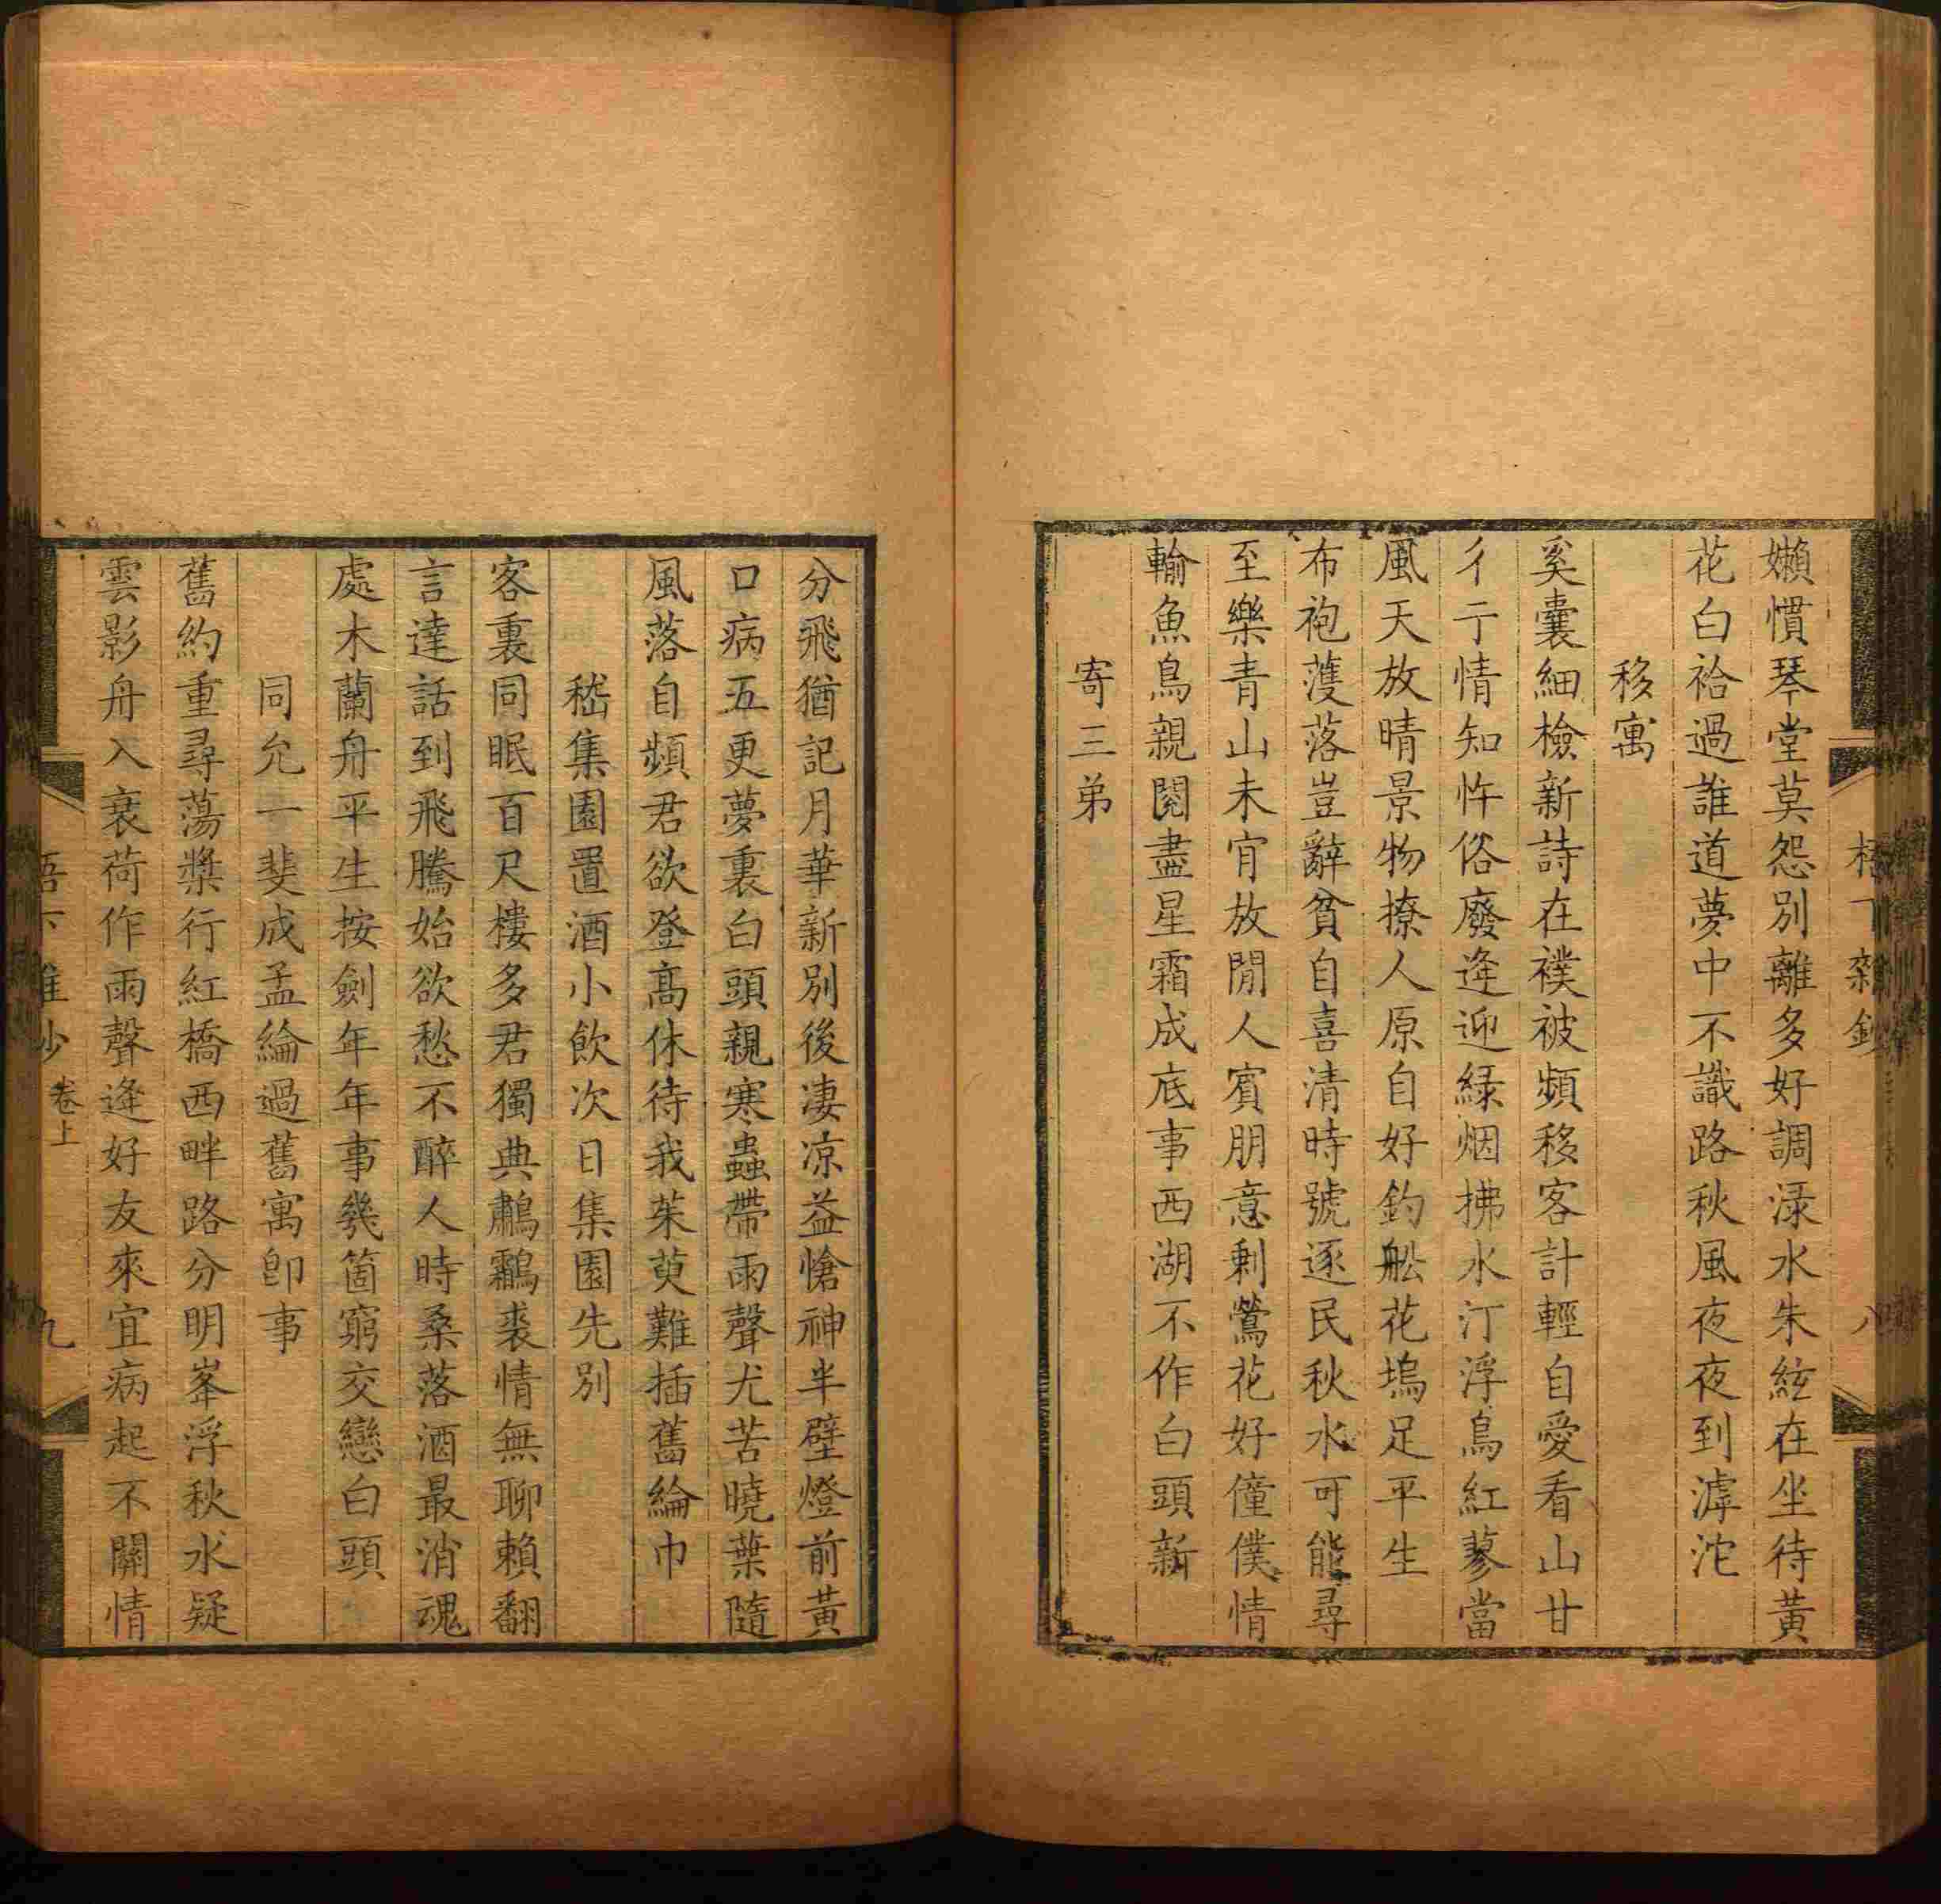 嬾慣琴堂莫怨別離多好調淥水朱絃在坐待黃
花白袷過誰道夢中不識路秋風夜夜到滹沱
移寓
奚囊細檢新詩在襆被頻移客計輕自愛看山甘
彳亍情知忤俗廢逢迎緑烟拂水汀浮鳥紅蓼當
風天放晴景物撩人原自好釣舩花塢足平生
布袍蒦落豈辭貧自喜清時號逐民秋水可能尋
至樂青山未肎放閒人賓朋意剩鶯花好僮僕情
輸魚鳥親閱盡星霜成底事西湖不作白頭新
寄三弟
分飛猶記月華新別後凄凉益愴神半壁燈前黃
口病五更夢裏白頭親寒蟲帶雨聲尤苦曉葉隨
風落自頻君欲登高休待我茱萸難插舊綸巾
嵇集園置酒小飲次日集園先別
客裏同眠百尺樓多君獨典鷫鸘裘情無聊賴翻
言達話到飛騰始欲愁不醉人時桑落酒最消魂
處木蘭舟平生按劍年年事幾箇窮交戀白頭
同允一斐成孟綸過舊寓卽事
舊約重尋蕩槳行紅橋西畔路分明峯浮秋水疑
雲影舟入衰荷作雨聲逢好友來宜病起不關情
卷上
九